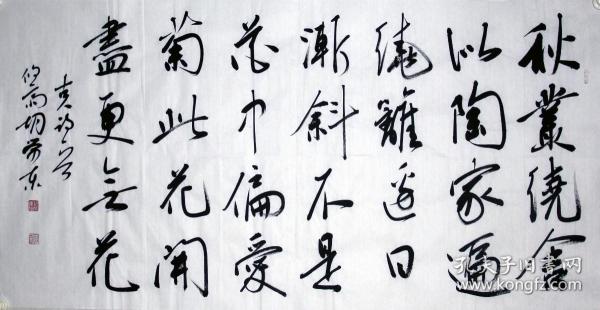 秋叢繞舍
似陶家遍
繞籬邊日
漸斜不是
花中偏愛
菊此花開
盡更無花
孔夫子旧书网
kongfz.com